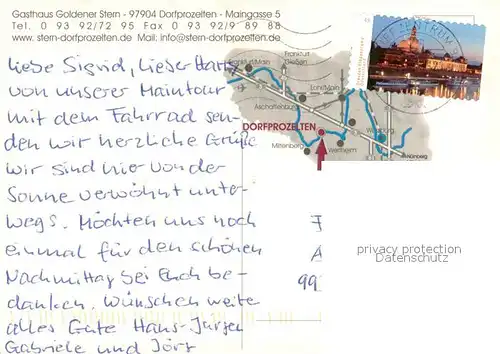 Gasthaus Goldener Stern - 97904 Dorfprozelten - Maingasse 5
Tel. 0 93 92/72 95 Fax 0 93 92/9 89 88
www. stern-dorfprozelten.de Mail: info@stern-dorfprozelten.de
Liebe Sigrid, lieber Hans
von unserer Maintour
mit dem Fahrrad sen-
den wir herzliche Grüße
Wir sind hier von der
Sonne verwöhnt unter-
wegs. Möchten uns noch
einmal für den schönen
Nachmittag bei Euch be-
danken. Wünschen weiter
alles Gute Hans-Jürgen
Gabriele und Jörg
Frankfurt/Main
Frankfurt
Gießen
Lohr/Main
Aschaffenburg
DORFPROZELTEN
Würzburg
Miltenberg
Wertheim
Nürnberg
F
A
99
privacy protection
Datenschutz